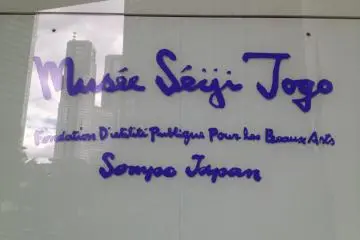 Musée Séiji Togo
Fondation D'utilité Publique Pour Les Beaux Arts
Sompo Japan